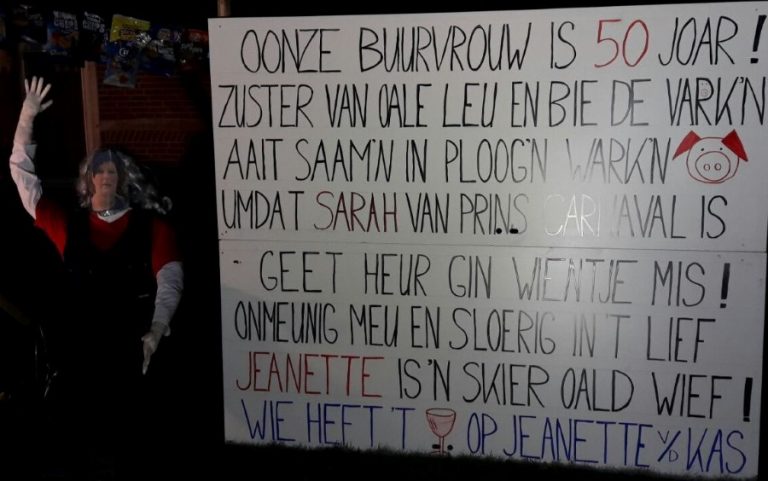 OONZE BUURVROUW IS 50 JOAR !
ZUSTER VAN OALE LEU EN BIE DE VARK'N
AAIT SAAM'N IN PLOOG'N WARK'N
UMDAT SARAH VAN PRINS CARNAVAL IS
GEET HEUR GIN WIENTJE MIS !
ONMEUNIG MEU EN SLOERIG IN'T LIEF
JEANETTE IS'N SKIER OALD WIEF !
WIE HEFT'T OP JEANETTE V/D KAS